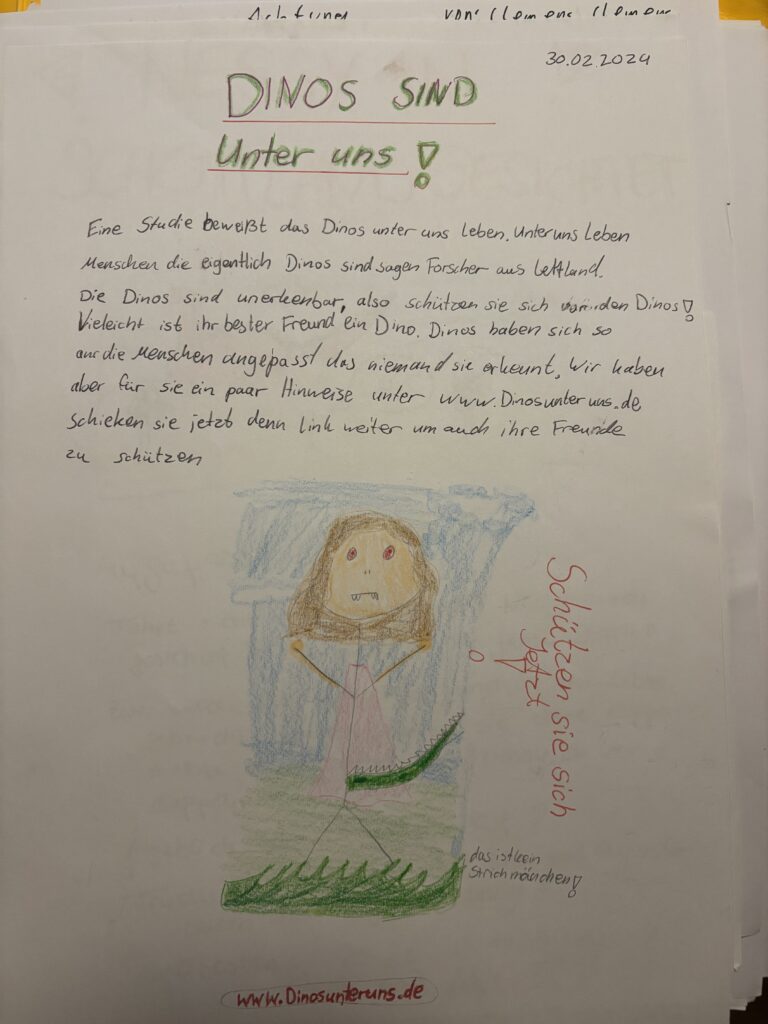 von: Clemens Clemens
30.02.2024
DINOS SIND
Unter uns!
Eine Studie beweißt das Dinos unter uns leben. Unter uns leben
Menschen die eigentlich Dinos sind sagen Forscher aus Lettland.
Die Dinos sind unerkenbar, also schützen sie sich den Dinos!
Vieleicht ist ihr bester Freund ein Dino. Dinos haben sich so
an die Menschen angepasst das niemand sie erkennt, Wir haben
aber für sie ein paar Hinweise unter www.Dinosunteruns.de,
schicken sie jetzt denn link weiter um auch ihre Freunde
zu schützen
Schützen sie sich
jetzt!
das ist kein
Strichmänchen!
www.Dinosunteruns.de